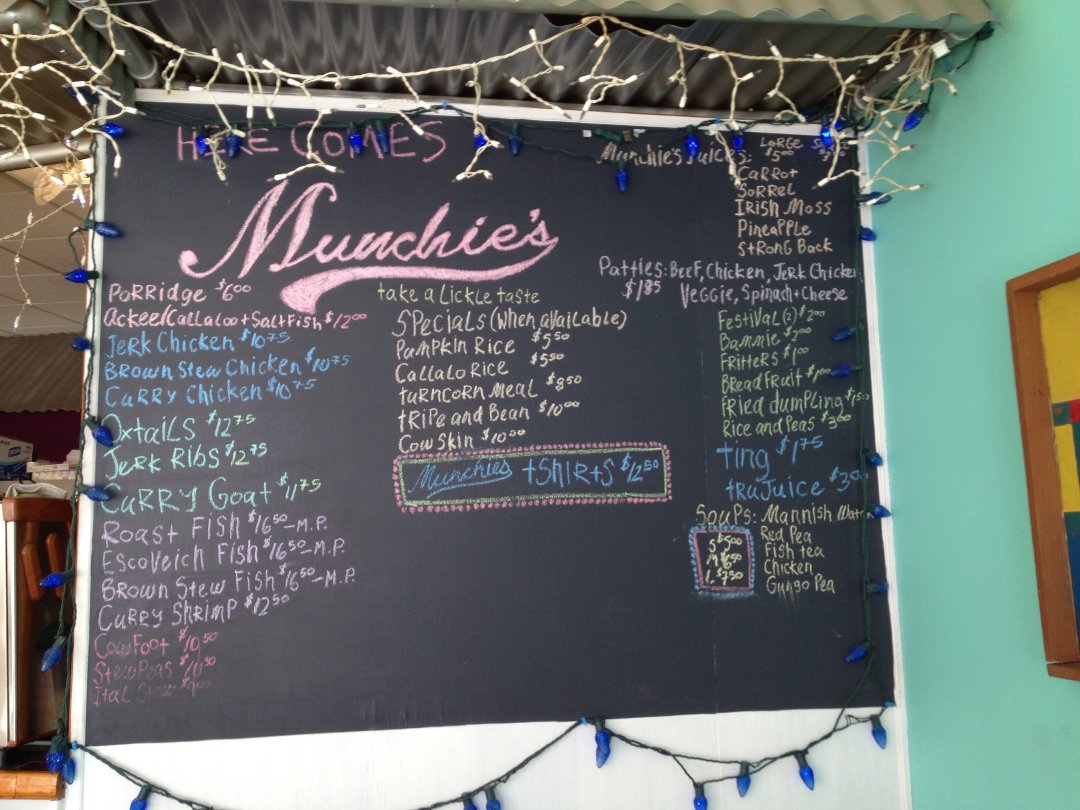 HERE COMES
Munchie's
Porridge $6.00
Ackee/Callaloo + Saltfish $12.00
Jerk Chicken $10.75
Brown Stew Chicken $10.75
Curry Chicken $10.75
Oxtails $12.75
Jerk Ribs $12.75
Curry Goat $11.75
Roast Fish $16.50-M.P.
Escoveich Fish $16.50-M.P.
Brown Stew Fish $16.50-M.P.
Curry Shrimp $12.50
Cowfoot $10.50
Stew Peas $10.50
Ital
take a Lickle taste
Specials (when available)
Pumpkin Rice $5.50
Callalo Rice $5.50
turncorn meal $8.50
tripe and Bean $10.00
Cow Skin $10.00
Munchies tShirts $12.50
Munchie's Juices: Large
$5.00
Carrot
Sorrel
Irish Moss
Pineapple
Strong Back
Patties: Beef, Chicken, Jerk Chicken
$1.85 Veggie, Spinach + Cheese
Festival (2) $2.00
Bammie $2.00
Fritters $1.00
Breadfruit
Fried dumpling
Rice and Peas $3.00
ting $1.75
traJuice
Soups: Mannish Water
Red Pea
Fish tea
Chicken
Gungo Pea
S $5.00
M $6.50
L $7.50